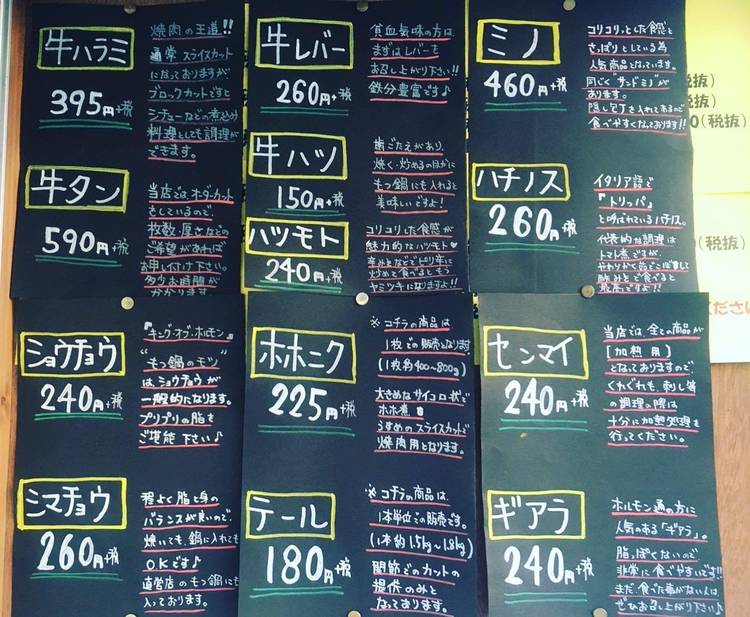 牛ハラミ
395円+税
焼肉の王道!!
通常スライスカット
になっておりますが
ブロックカットですと
シチューなどの煮込み
料理としても調理が
できます。
牛タン
590円+税
当店では、オーダーカット
をしているので、
枚数・厚さなどの
ご希望があれば
お申し付け下さい。
多少お時間が
かかります
牛レバー
260円+税
貧血気味の方は
まずはレバーを
お召し上がり下さい!!
鉄分豊富です♪
牛ハツ
150円+税
歯ごたえがあり、
焼く・炒めるのほかに
もつ鍋にも入れると
美味しいですよ!
ハツモト
240円+税
コリコリした食感が
魅力的なハツモト♥
炒めて食べるともう
ヤミツキになりますよ!!
ミノ
460円+税
コリコリっとした食感と
さっぱりとしている為
人気商品となっています。
同じく“サンドミノ”が
あります。
隠し包丁を入れてあるので
食べやすくなっております!!
ハチノス
260円+税
イタリア語で
『トリッパ』
と呼ばれているハチノス。
代表的な調理は
トマト煮ですが
やわらかく茹でこぼして
酢みそで食べると
最高ですよ!!
ショウチョウ
240円+税
『キング・オブ・ホルモン』
“もつ鍋のモツ”
は、ショウチョウが
一般的になります。
プリプリの脂を
ご堪能下さい♪
シマチョウ
260円+税
程よく脂と身の
バランスが良いので、
焼いても、鍋に入れても
OKです♪
直営店のもつ鍋にも
入っております。
ホホニク
225円+税
※コチラの商品は
1枚での販売となります
(1枚約400~800g)
大きめなサイコロ状で
ホホ煮
うすめのスライスカットで
焼肉用となります。
テール
180円+税
※コチラの商品は、
1本単位での販売です。
(1本約1.5kg~1.8kg)
関節でのカットの
提供のみと
なっております。
センマイ
240円+税
当店では全ての商品が
[加熱用]
となっておりますので
くれぐれも、刺し等
の調理の際は
十分に加熱処理を
行ってください。
ギアラ
240円+税
ホルモン通の方に
人気のある「ギアラ」。
脂っぽくないので
非常に食べやすいです!!
まだ、食べた事がない人は
ぜひお召し上がり下さい♪
税抜)
税抜)
0(税抜)
税抜)
ください